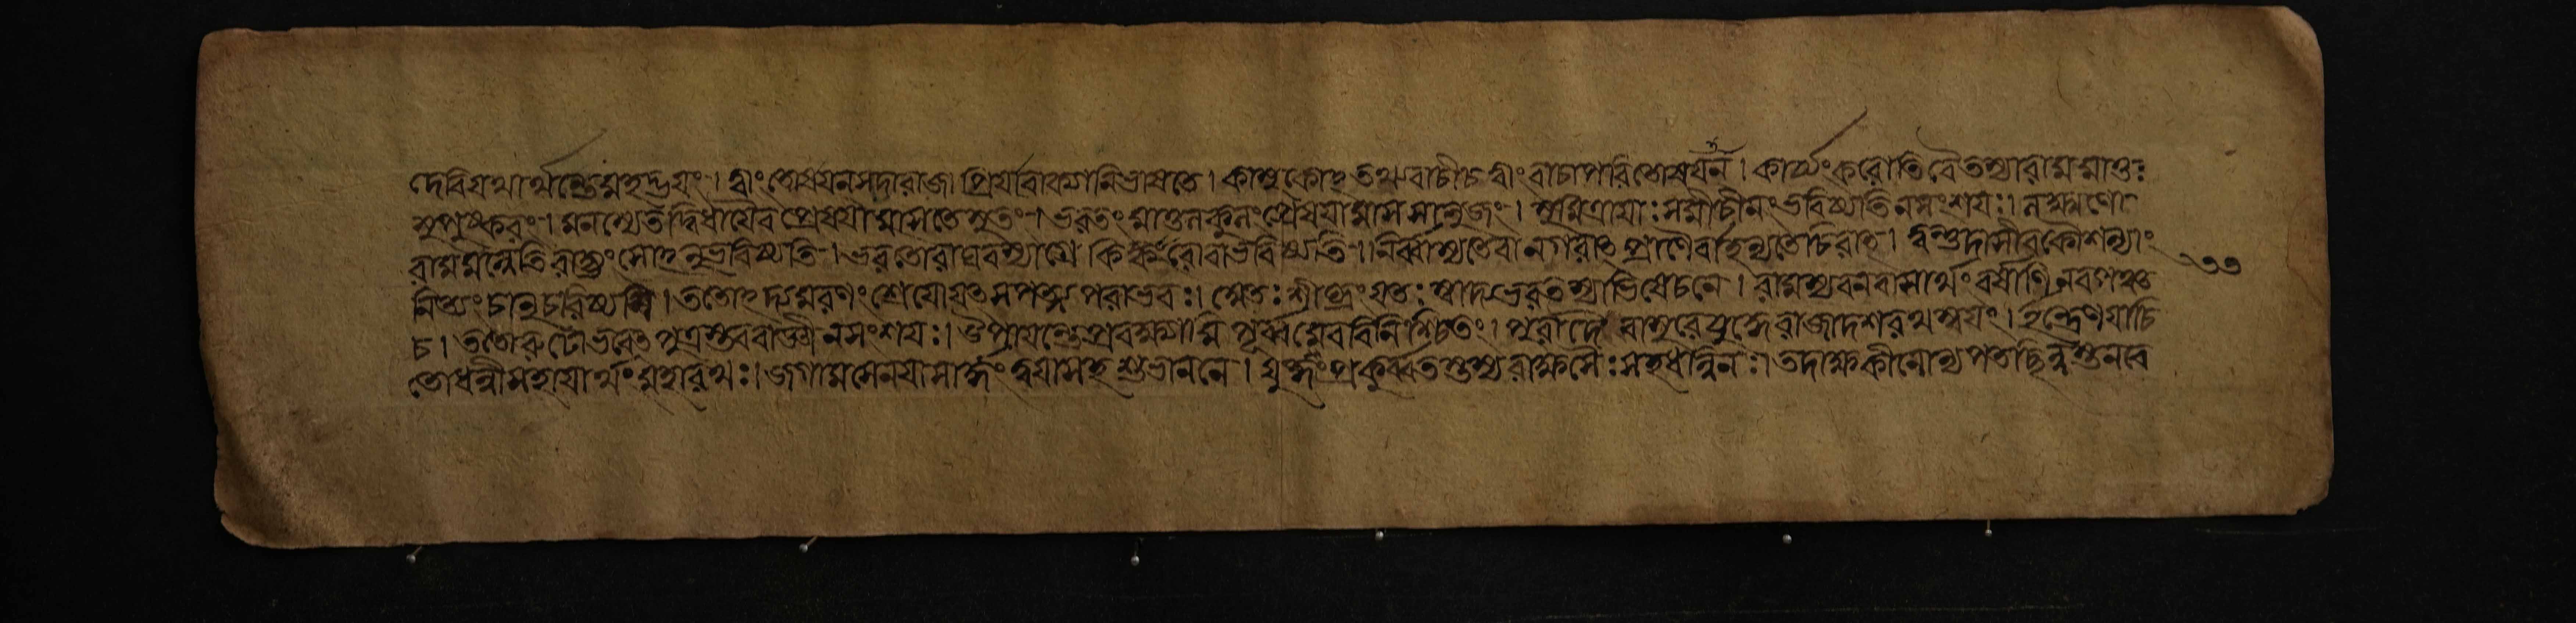 দেবি যথার্থন্তে মহদ্ভয়ং। ত্বাং তোষয়ন সদা রাজা প্রিয়বাক্যানি ভাষতে। কামুকোঽতথ্যবাচী চ ত্বাং বাচা পরিতোষয়ন্। কার্য্যং করোতি বৈ তস্যা রামমাতুঃ
সুপুষ্করং। মনস্যেতদ্বিধায়ৈব প্রেষয়ামাস তে সুতং। ভরতং মাতুলকুলং প্রেষয়ামাস সানুজং। সুমিত্রায়াঃ সমীচীনং ভবিষ্যতি ন সংশয়ঃ। লক্ষ্মণো
রামমন্বেতি রাজ্যং সোঽনুভবিষ্যতি। ভরতো রাঘবস্যাগ্রে কিঙ্করো বা ভবিষ্যতি। নির্ব্বাস্যতে বা নগরাৎ প্রাণৈর্বা হাস্যতেচিরাৎ। ত্বন্তু দাসীব কৌশল্যাং
নিত্যং চানুচরিষ্যসি। ততোঽদ্য মরণং শ্রেয়ো যৎ সপত্ন্যা পরাভবঃ। অতঃ শীঘ্রং যতঃ স্বাদ্য ভরতস্যাভিষেচনে। রামস্য বনবাসার্থং বর্ষাণি নব পঞ্চ
চ। ততো রূঢো ভবেৎ পুত্রস্তব রাজ্ঞী ন সংশয়ঃ। উপায়ন্তে প্রবক্ষ্যামি পূর্ব্বমেব বিনিশ্চিতং। পুরা দেবাসুরে যুদ্ধে রাজা দশরথ স্বয়ং। ইন্দ্রেণ যাচি
তো ধন্বী সহায়ার্থং মহারথঃ। জগাম সেনয়া সার্দ্ধং ত্বয়া সহ শুভাননে। যুদ্ধং প্রকুর্ব্বতস্তস্য রাক্ষসৈঃ সহ ধন্বিনঃ। তদাক্ষকীলো ন্যপতচ্ছিন্নস্তন বে